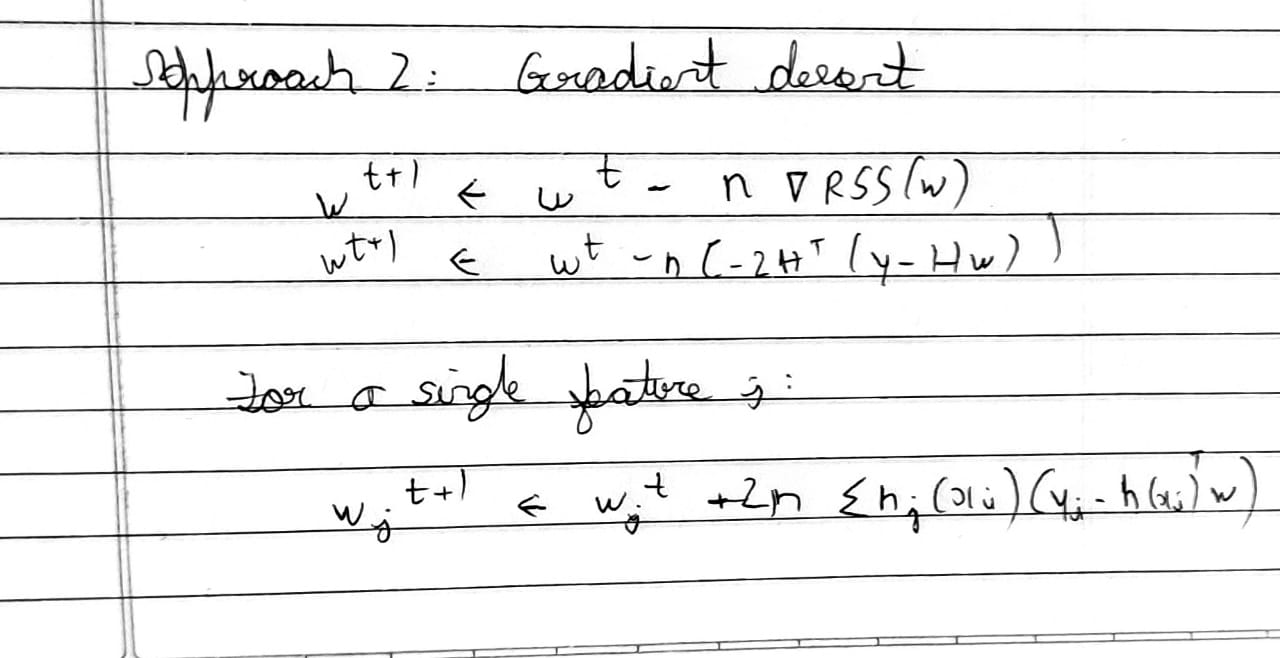 Approach 2: Gradient descent
w^{t+1} ← w^t - η ∇ RSS(w)
w^{t+1} ← w^t - η (-2H^T (y - Hw))
For a single feature j:
w_j^{t+1} ← w_j^t + 2η Σ h_j(x_i)(y_i - h(x_i)^T w)